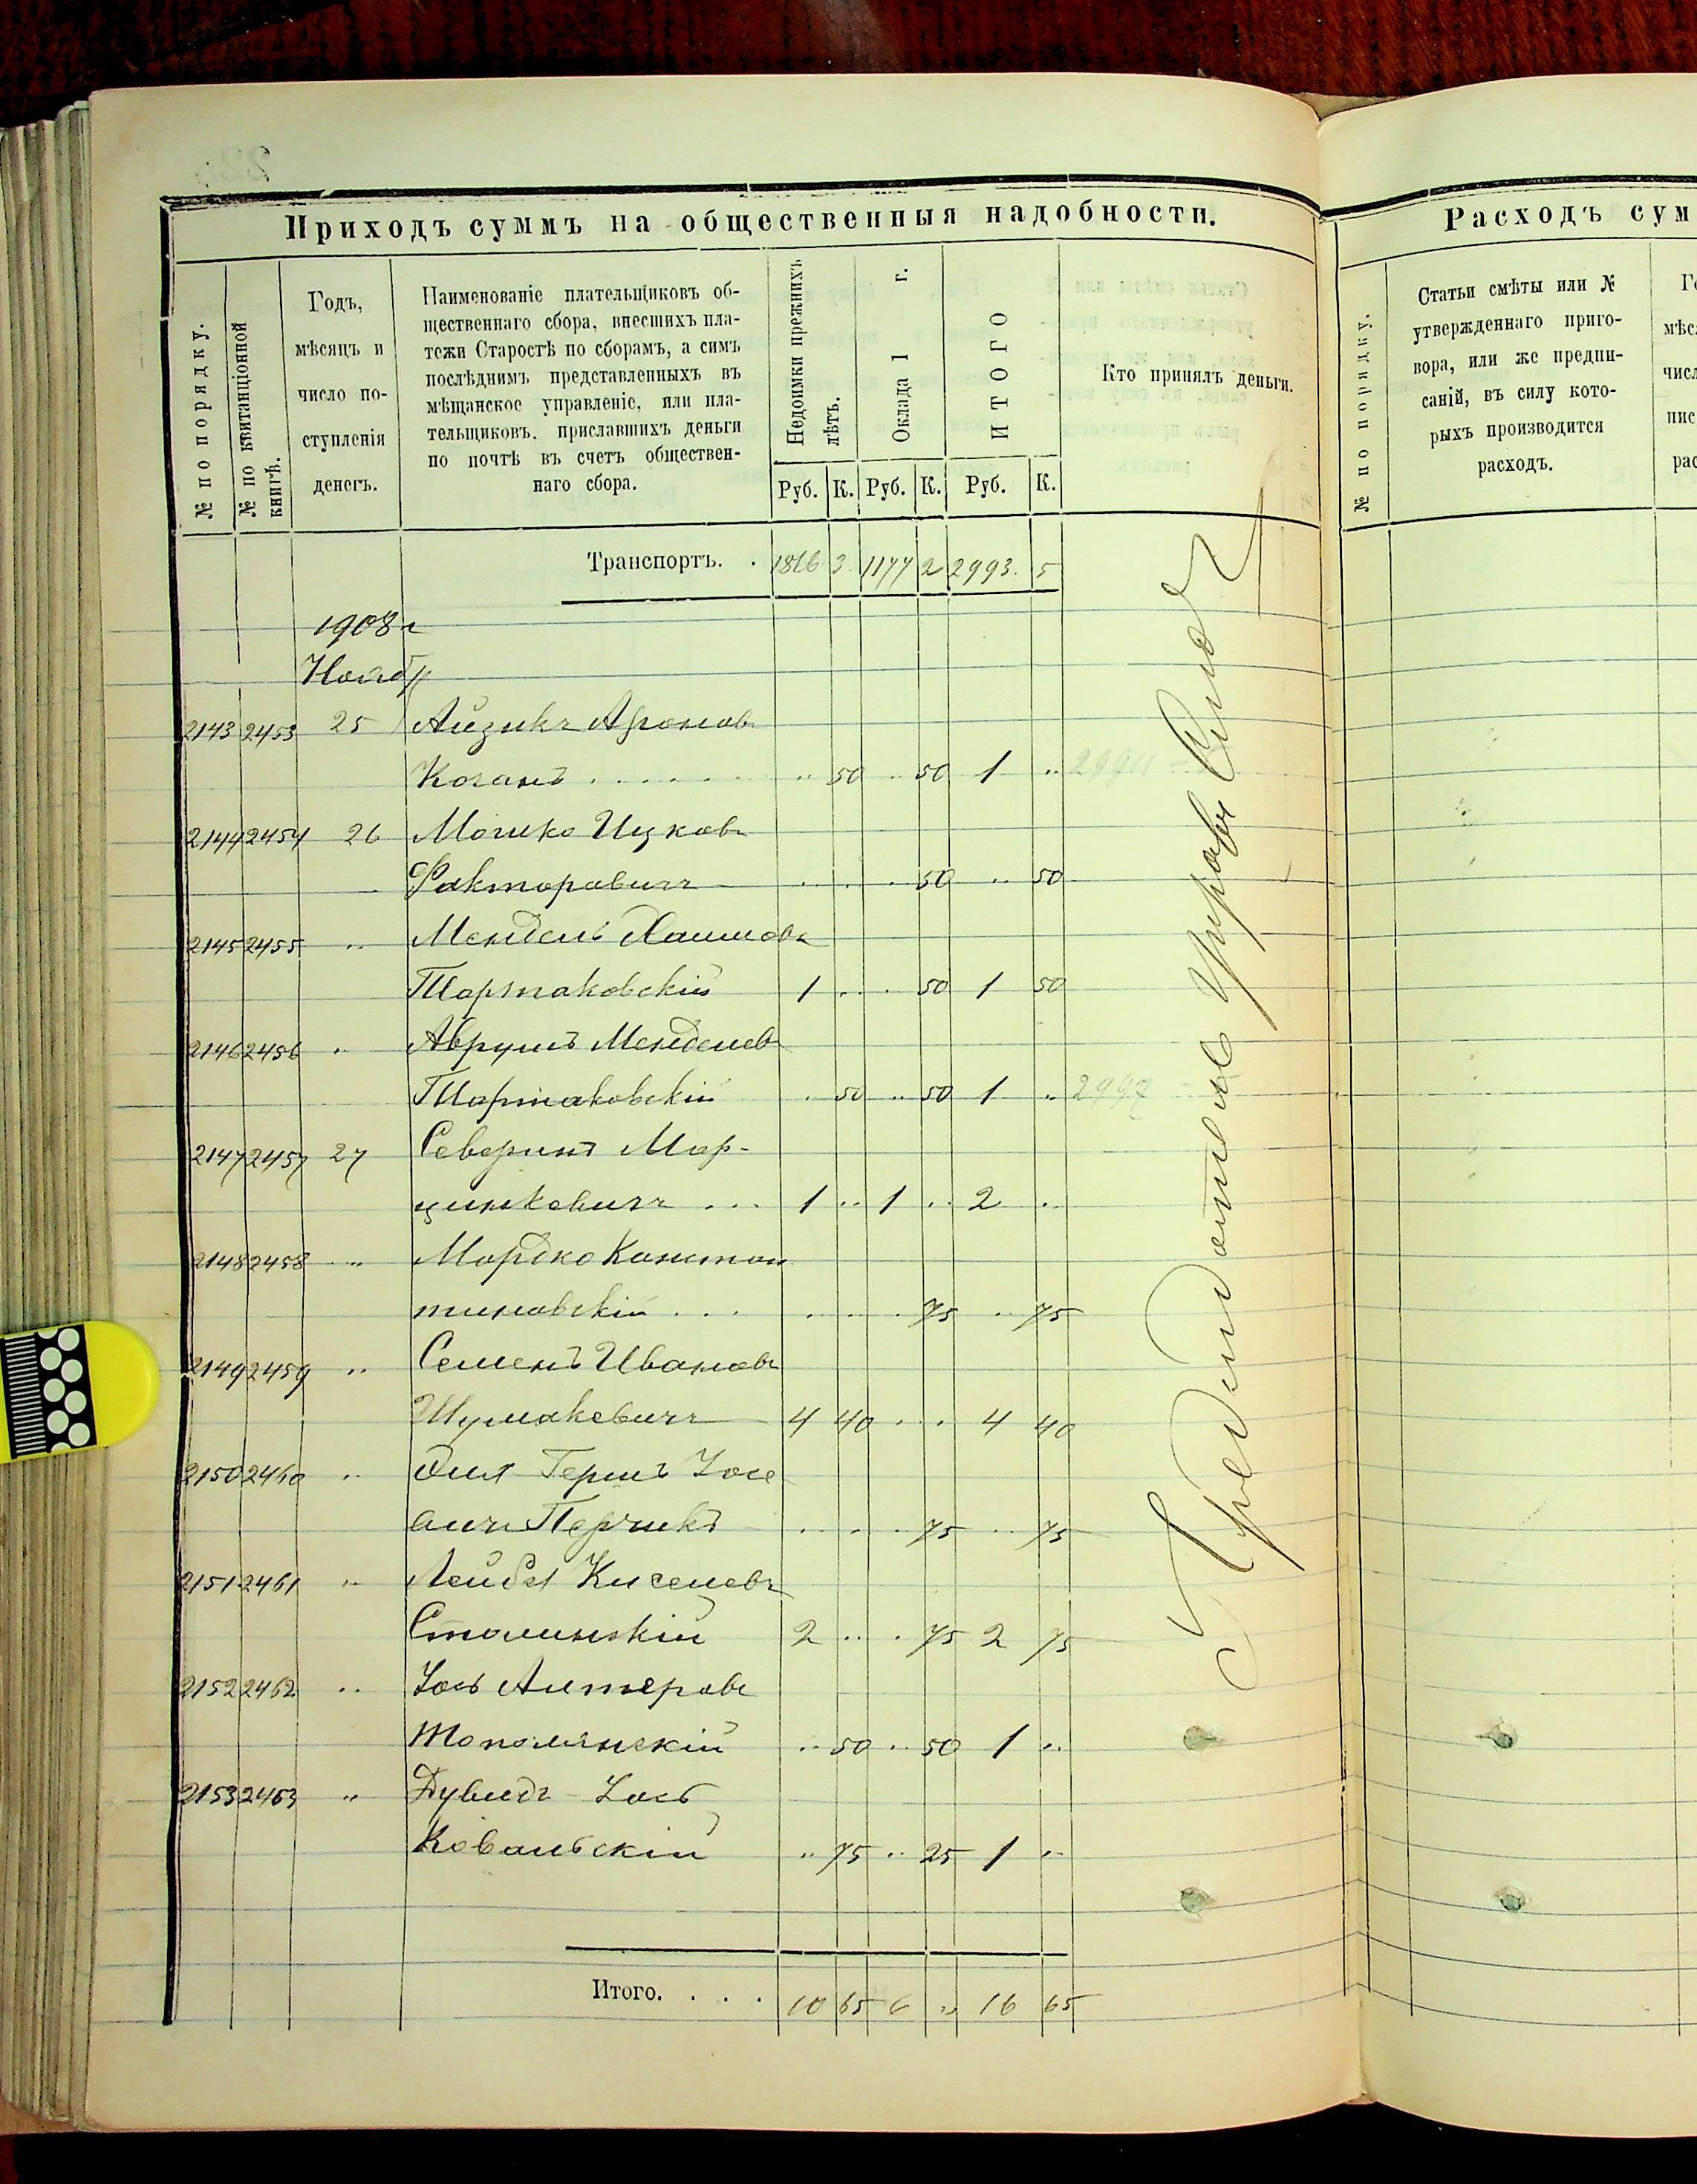 Приходъ суммъ на общественныя надобности.
№ по порядку.
№ по квитанціонной книгѣ.
Годъ,
мѣсяцъ и
число по-
ступленія
денегъ.
Наименованіе плательщиковъ об-
щественнаго сбора, внесшихъ пла-
тежи Старостѣ по сборамъ, а симъ
послѣднимъ представленныхъ въ
мѣщанское управленіе, или пла-
тельщиковъ, приславшихъ деньги
по почтѣ въ счетъ обществен-
наго сбора.
Недоимки прежнихъ лѣтъ.
Оклада 1 г.
ИТОГО
Кто принялъ деньги.
Руб. К. Руб. К. Руб. К.
Транспортъ. . 1816 3 1177 2 2993. 5
1908 г
Ноябр
2143 2453 25 Айзикъ Ароновъ
Коганъ . . . . . . " 50 " 50 1 "
2144 2454 26 Мошко Ицковъ
Факторовичъ . . . . 50 " 50
2145 2455 " Мендель Хаимовъ
Шартаковскій 1 . . . 50 1 50
2146 2456 " Аврумъ Менделев
Шартаковскій " 50 " 50 1 " 2997
2147 2457 27 Северинъ Мар-
цинкевичъ . . . 1 " 1 " 2 "
2148 2458 " Мордко Констан
тиновскій . . . . . . . 75 " 75
2149 2459 " Семенъ Ивановъ
Шумакевичъ 4 40 . . . 4 40
2150 2460 " Эля Гершъ Іосе
Перчикъ . . . . 75 " 75
2151 2461 " Лейба Киселевъ
Столинскій 2 " . 75 2 75
2152 2462 " Іось Алтеровъ
Тополянскій " 50 " 50 1 "
2153 2463 " Дувидъ - Іось
Ковальскій " 75 " 25 1 "
Итого. . . . 10 65 6 " 16 65
Расходъ сум
№ по порядку.
Статьи смѣты или №
утвержденнаго приго-
вора, или же предпи-
саній, въ силу кото-
рыхъ производится
расходъ.
Го
мѣс
числ
пис
рас